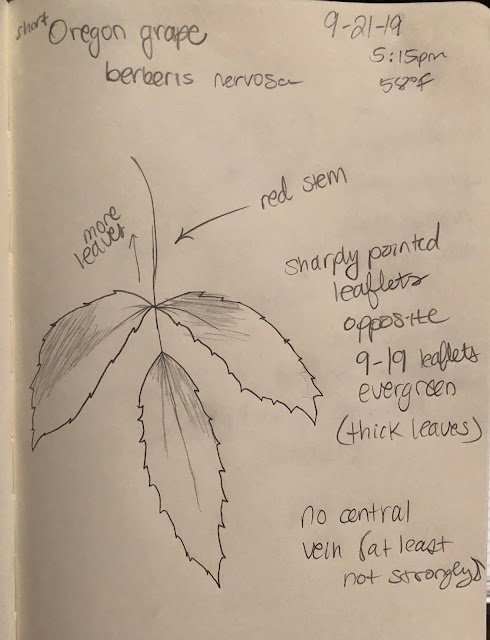 short Oregon grape
berberis nervosa
9-21-19
5:15pm
58°f
more
leaves
red stem
sharply pointed
leaflets
opposite
9-19 leaflets
evergreen
(thick leaves)
no central
vein (at least
not strongly)